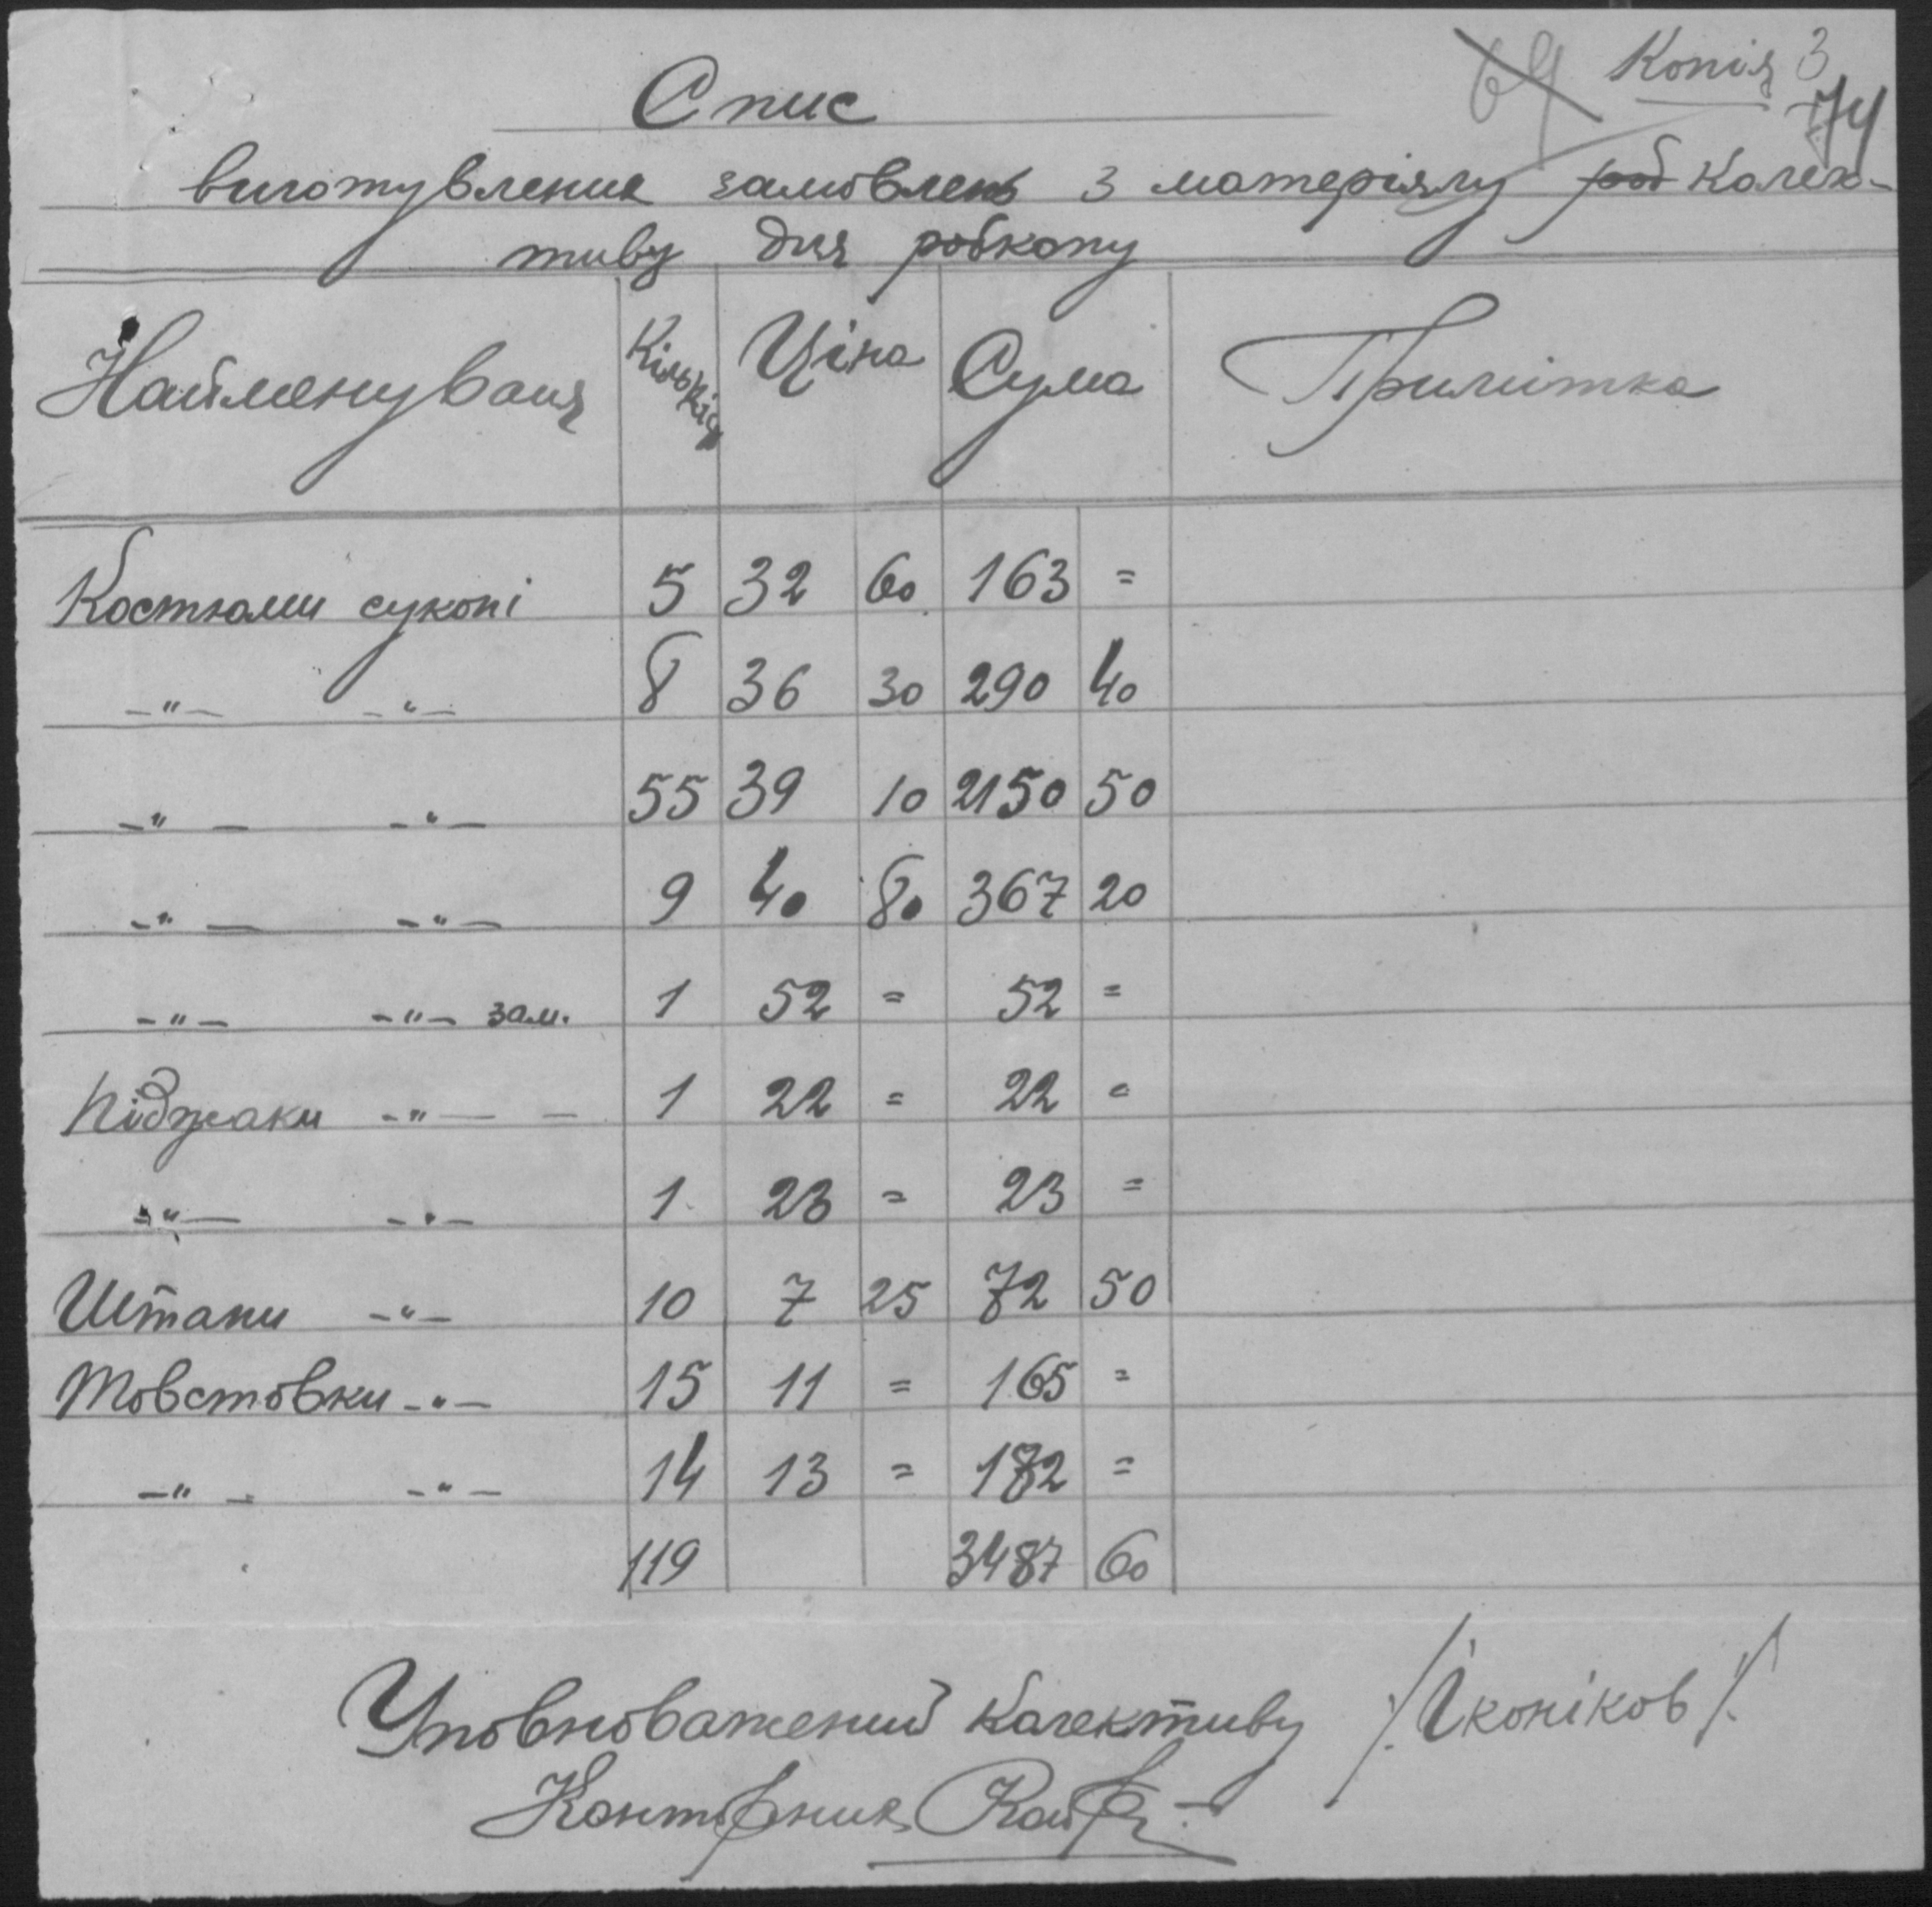 69 Копія 3
74
Спис
виготувления замовлень з матеріялу роб Колек-
тиву для робкопу
Найменуваня Кількість Ціна Сума Примітка
Костюми суконі 5 32 60 163 =
-"- -"- 8 36 30 290 40
-"- -"- 55 39 10 2150 50
-"- -"- 9 40 80 367 20
-"- -"- зам. 1 52 = 52 =
Піджаки -"- - 1 22 = 22 =
-"- -"- 1 23 = 23 =
Штани -"- 10 7 25 72 50
Товстовки -"- 15 11 = 165 =
-"- -"- 14 13 = 182 =
119 3487 60
Уповноважений Колективу /Іконіков/
Конторник